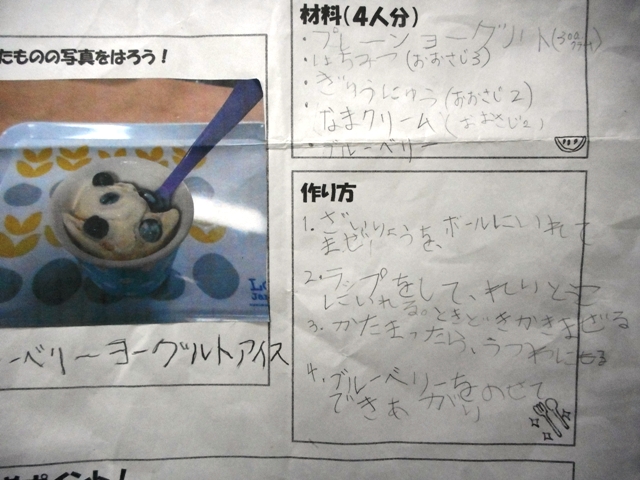 たものの写真をはろう!
ーベリーヨーグルトアイス
材料(4人分)
・プレーンヨーグルト(300グラム)
・はちみつ(おおさじ3)
・ぎゅうにゅう(おおさじ2)
・なまクリーム(おおさじ2)
・ブルーベリー
作り方
1.ざいりょうを、ボールにいれて
まぜ
2.ラップをして、れいとうこ
にいれる。ときどきかきまぜる
3.かたまったら、うつわにもる
4.ブルーベリーをのせて
できあがり
ポイント!